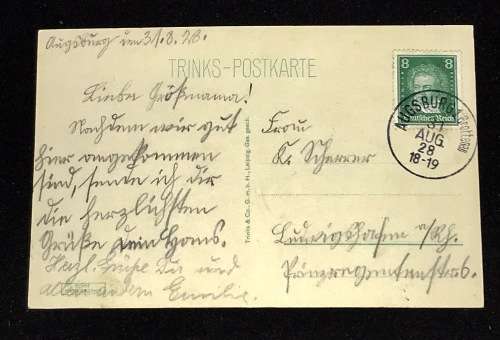 Augsburg den 31.8.28.
TRINKS-POSTKARTE
8 8
Deutsches Reich
AUGSBURG
31
AUG.
28
18-19
Liebe Großmama!
Nachdem wir gut
hier angekommen
sind, sende ich dir
die herzlichsten
Grüße Dein Hans.
Herzl. Grüße Du und
alle andern Emilie.
Trinks & Co., G. m. b. H., Leipzig. Ges. gesch.
Frau
K. Scherrer
Ludwigshafen a/Rh.
Prinzregentenstrß.